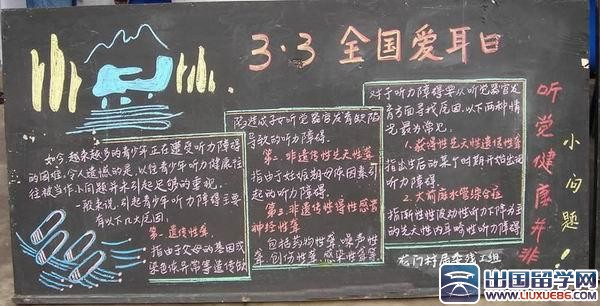 3·3 全国爱耳日
如今,越来越多的青少年正在遭受听力障碍
的困扰,令人遗憾的是,以往青少年听力健康往
往被当作小问题并未引起足够的重视。
一般来说,引起青少年听力障碍主要
有以下几大原因:
第一.遗传性聋
指由于父母的基因或
染色体异常等遗传缺
陷造成子女听觉器官发育缺陷
导致的听力障碍。
第二.非遗传性先天性聋
指由于妊娠期母体因素引
起的听力障碍。
第三.非遗传性得性感音
神经性聋
包括药物性聋、噪声性
聋、创伤性聋、感染性聋等
对于听力障碍要从听觉器官发
育方面寻找原因。以下两种情
况最为常见:
1.获得性先天性遗传性聋
指出生后的某个时期开始出现
听力障碍
2.大前庭水管综合症
指渐进性波动性听力下降为主
的先天性内耳畸性听力障碍
听觉健康并非
小问题!
龙门村居
组
出国留学网
WWW.LIUXUE86.COM